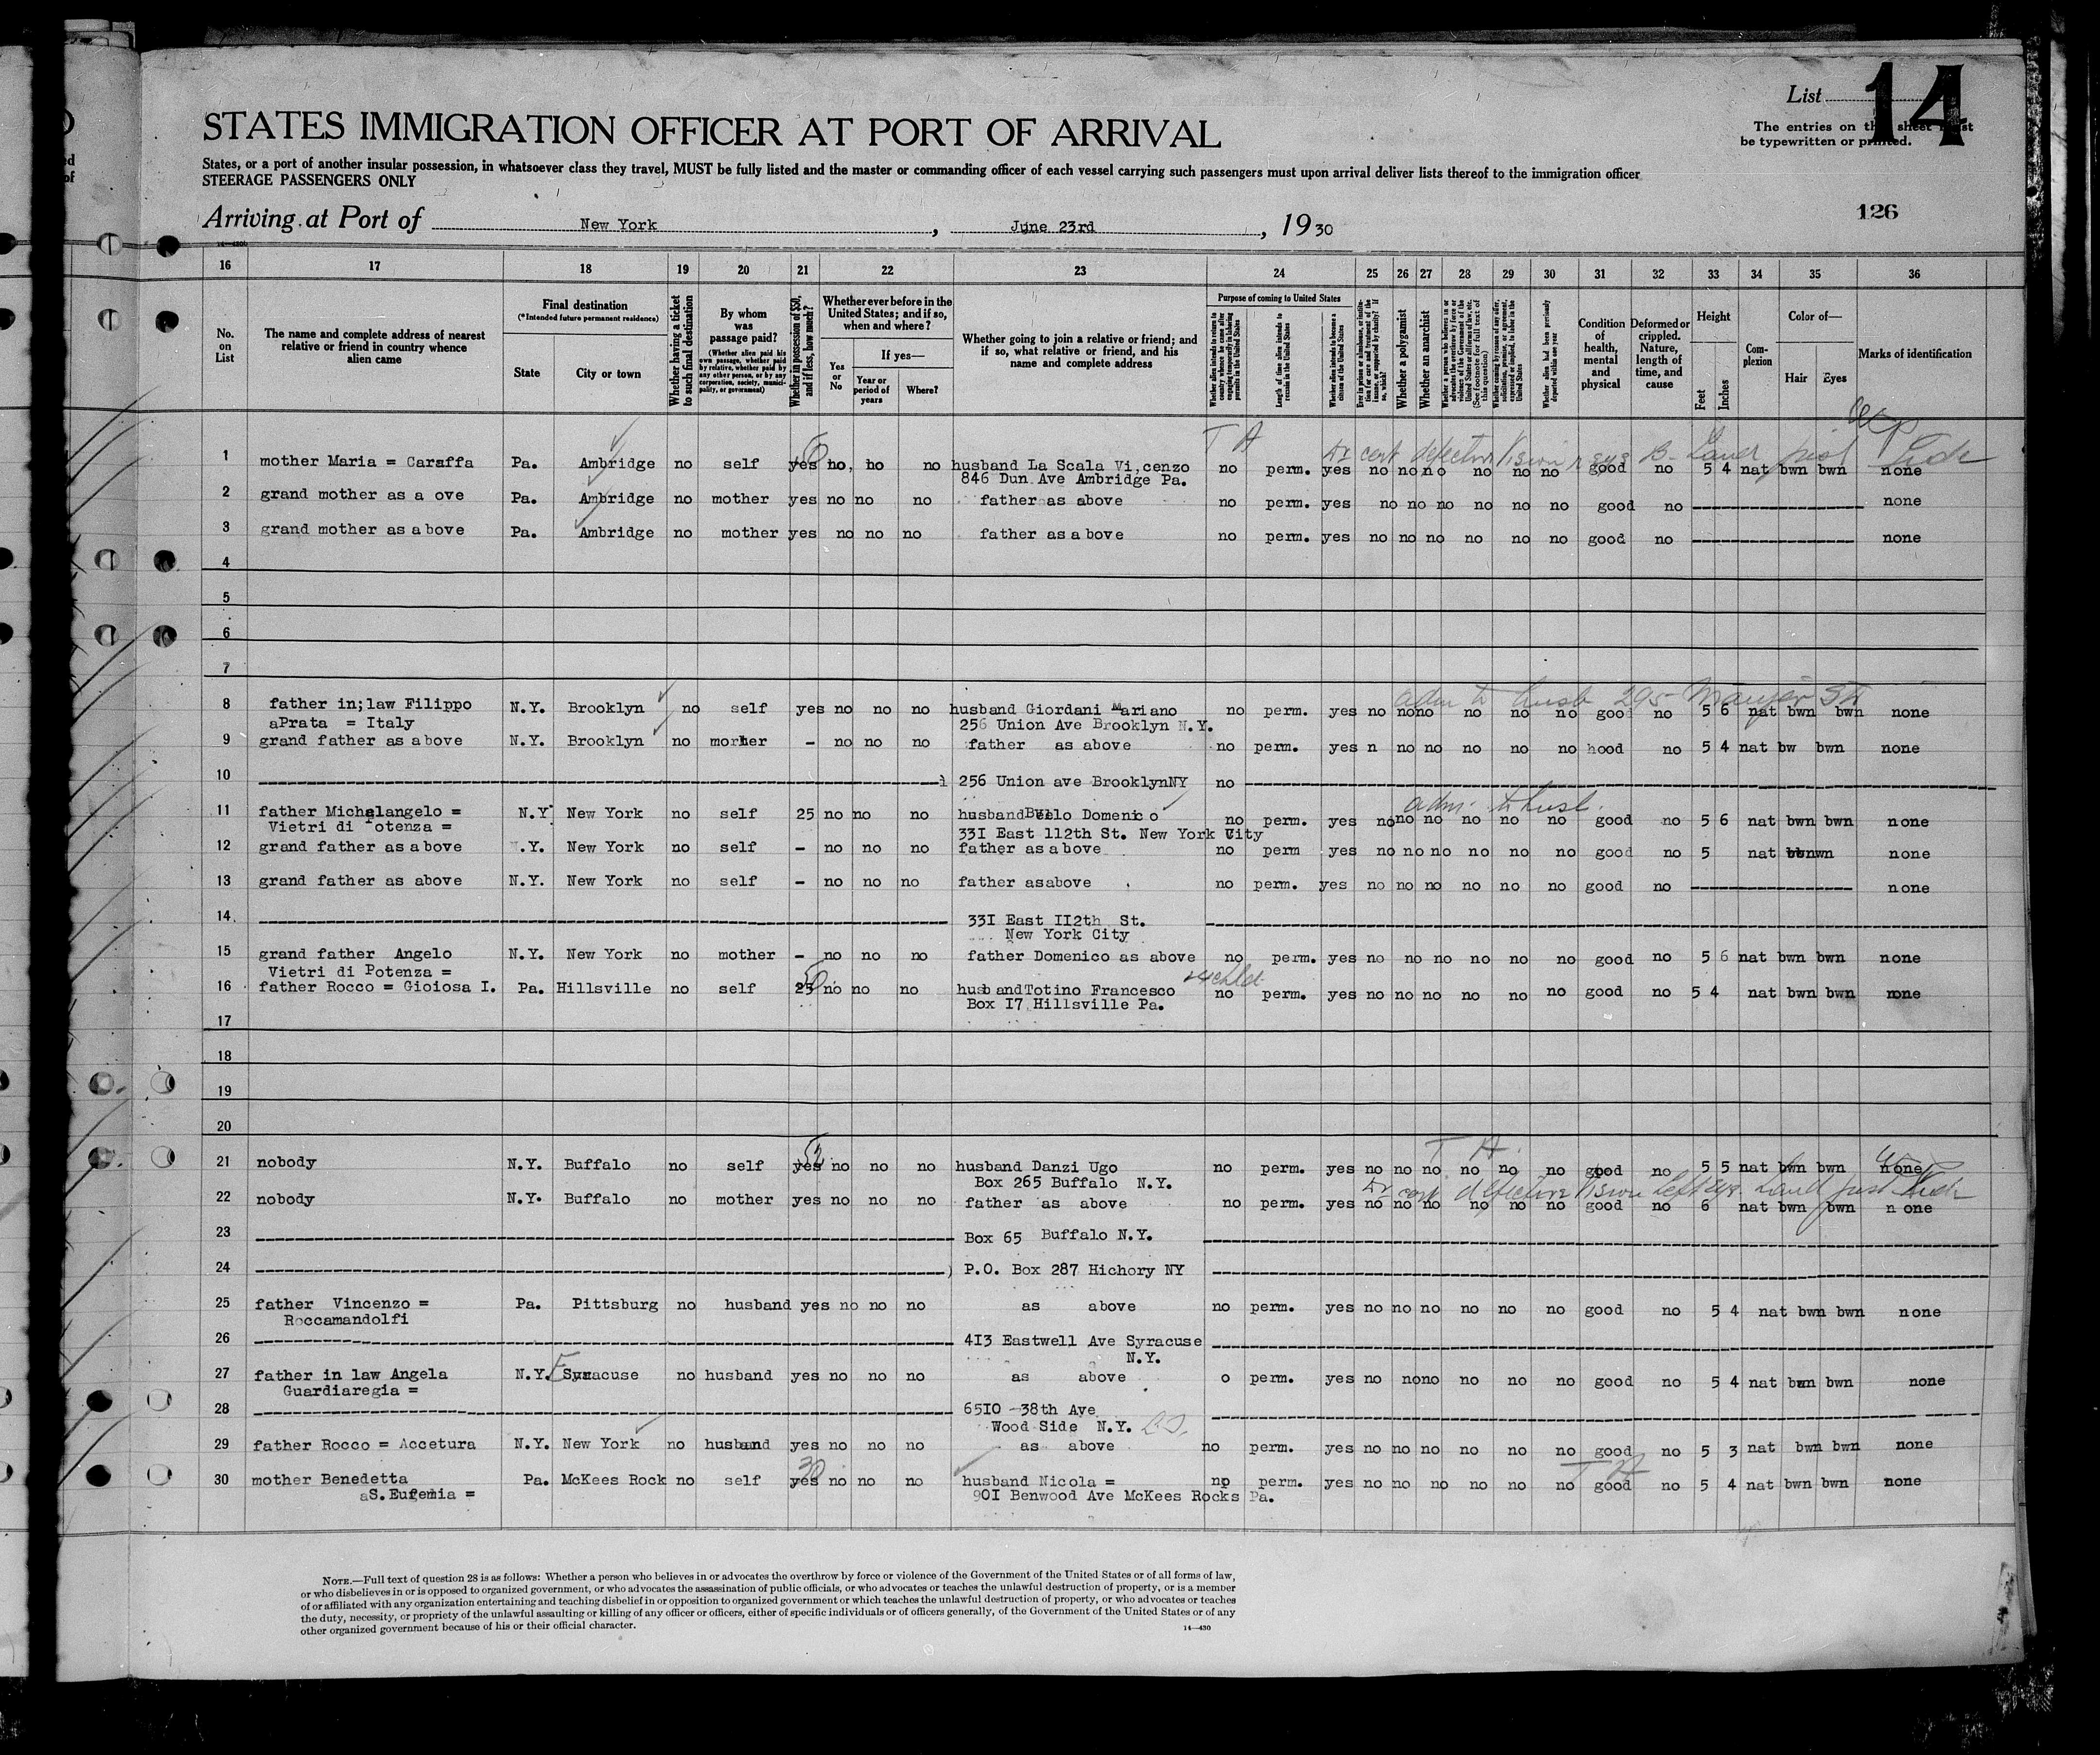 List 14
The entries on this sheet must
be typewritten or printed.
STATES IMMIGRATION OFFICER AT PORT OF ARRIVAL
States, or a port of another insular possession, in whatsoever class they travel, MUST be fully listed and the master or commanding officer of each vessel carrying such passengers must upon arrival deliver lists thereof to the immigration officer
STEERAGE PASSENGERS ONLY
126
Arriving at Port of New York, June 23rd, 1930
16 17 18 19 20 21 22 23 24 25 26 27 28 29 30 31 32 33 34 35 36
No. on List
The name and complete address of nearest relative or friend in country whence alien came
Final destination
(*Intended future permanent residence)
State
City or town
Whether having a ticket to such final destination
By whom was passage paid?
(Whether alien paid his own passage, whether paid by relative, whether paid by any other person, or by any corporation, society, municipality, or government)
Whether in possession of $50, and if less, how much?
Whether ever before in the United States; and if so, when and where?
Yes or No
If yes—
Year or period of years
Where?
Whether going to join a relative or friend; and if so, what relative or friend, and his name and complete address
Purpose of coming to United States
Length of time alien intends to remain in the United States
Whether alien intends to become a citizen of the United States
Whether a polygamist
Whether an anarchist
Condition of health, mental and physical
Deformed or crippled. Nature, length of time, and cause
Height
Feet
Inches
Complexion
Color of—
Hair
Eyes
Marks of identification
T A
1 mother Maria = Caraffa Pa. Ambridge no self yes no, no no husband La Scala Vi,cenzo no perm. yes no no no no no no good no 5 4 nat bwn bwn none
846 Dun Ave Ambridge Pa.
2 grand mother as a ove Pa. Ambridge no mother yes no no no father as above no perm. yes no no no no no no good no none
3 grand mother as above Pa. Ambridge no mother yes no no no father as above no perm. yes no no no no no no good no none
4
5
6
7
adm to husb 295
8 father in;law Filippo N.Y. Brooklyn no self yes no no no husband Giordani Mariano no perm. yes no no no no no no good no 5 6 nat bwn bwn none
aPrata = Italy 256 Union Ave Brooklyn N.Y.
9 grand father as above N.Y. Brooklyn no morher - no no no father as above no perm. yes n no no no no no hood no 5 4 nat bw bwn none
10 256 Union ave BrooklynNY no
adm. to husb.
11 father Michelangelo = N.Y. New York no self 25 no no no husband Bello Domenico no perm. yes no no no no no no good no 5 6 nat bwn bwn none
Vietri di Potenza = 33I East 112th St. New York City
12 grand father as above .Y. New York no self - no no no father as above no perm yes no no no no no no good no 5 nat none
13 grand father as above N.Y. New York no self - no no no father asabove no perm. yes no no no no no no good no none
14. 33I East II2th St.
New York City
15 grand father Angelo N.Y. New York no mother - no no no father Domenico as above no perm. yes no no no no no no good no 5 6 nat bwn bwn none
Vietri di Potenza =
16 father Rocco = Gioiosa I. Pa. Hillsville no self 25 50 no no no husband Totino Francesco no perm. yes no no no no no no good no 5 4 nat bwn bwn none
Box I7 Hillsville Pa.
17
18
19
20
T A.
21 nobody N.Y. Buffalo no self yes no no no husband Danzi Ugo no perm. yes no no no no no no good no 5 5 nat bwn bwn none
Box 265 Buffalo N.Y.
22 nobody N.Y. Buffalo no mother yes no no no father as above no perm. yes no no no no no no good no 6 nat bwn bwn n one
23 Box 65 Buffalo N.Y.
24 P.O. Box 287 Hichory NY
25 father Vincenzo = Pa. Pittsburg no husband yes no no no as above no perm. yes no no no no no no good no 5 4 nat bwn bwn none
Roccamandolfi
26 4I3 Eastwell Ave Syracuse
N.Y.
27 father in law Angela N.Y. Syracuse no husband yes no no no as above o perm. yes no no no no no no good no 5 4 nat bwn bwn none
Guardiaregia =
28 65I0 -38th Ave
Wood Side N.Y.
29 father Rocco = Accetura N.Y. New York no husband yes no no no as above no perm. yes no no no no no no good no 5 3 nat bwn bwn none
T A
30 mother Benedetta Pa. McKees Rock no self yes 30 no no no husband Nicola = no perm. yes no no no no no no good no 5 4 nat bwn bwn none
aS. Eufemia = 90I Benwood Ave McKees Rocks Pa.
NOTE.—Full text of question 28 is as follows: Whether a person who believes in or advocates the overthrow by force or violence of the Government of the United States or of all forms of law,
or who disbelieves in or is opposed to organized government, or who advocates the assassination of public officials, or who advocates or teaches the unlawful destruction of property, or is a member
of or affiliated with any organization entertaining and teaching disbelief in or opposition to organized government or which teaches the unlawful destruction of property, or who advocates or teaches
the duty, necessity, or propriety of the unlawful assaulting or killing of any officer or officers, either of specific individuals or of officers generally, of the Government of the United States or of any
other organized government because of his or their official character.
14—430